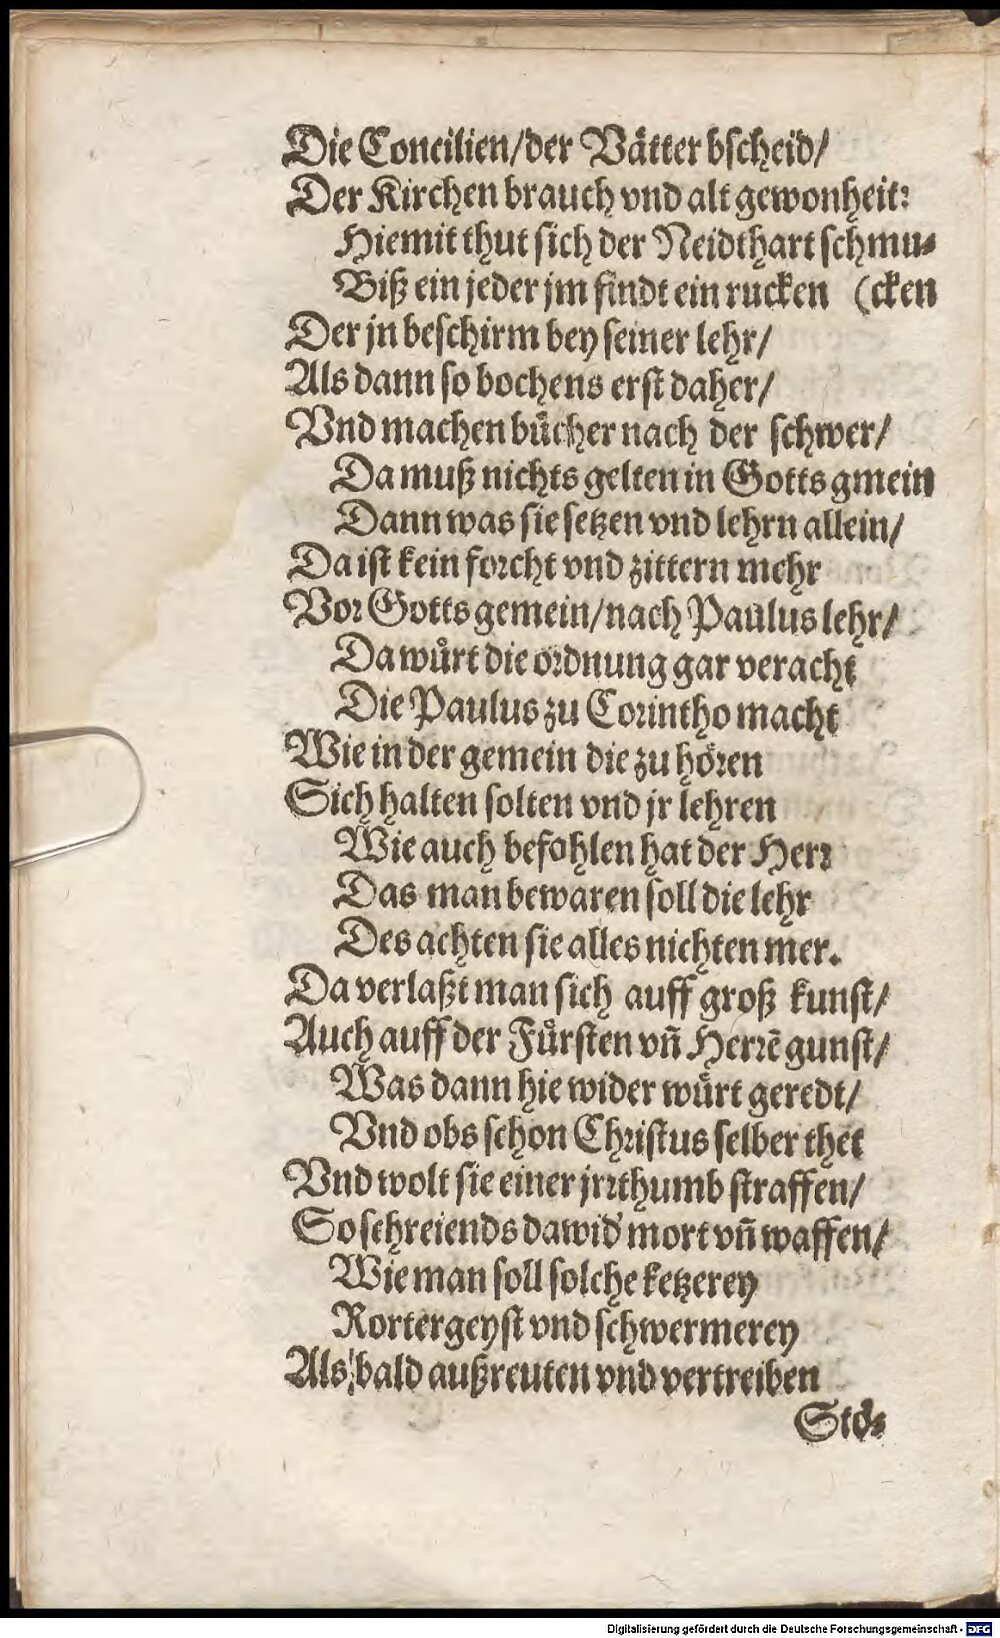 Die Concilien/der Vaͤtter bscheid/
Der Kirchen brauch vnd alt gewonheit:
Hiemit thut sich der Neidthart schmu⸗
Biß ein jeder jm findt ein rucken (cken
Der jn beschirm bey seiner lehr/
Als dann so bochens erst daher/
Vnd machen buͤcher nach der schwer/
Da muß nichts gelten in Gotts gmein
Dann was sie setzen vnd lehrn allein/
Da ist kein forcht vnd zittern mehr
Vor Gotts gemein/nach Paulus lehr/
Da wuͤrt die ordnung gar veracht
Die Paulus zu Corintho macht
Wie in der gemein die zu hoͤren
Sich halten solten vnd jr lehren
Wie auch befohlen hat der Herr
Das man bewaren soll die lehr
Des achten sie alles nichten mer.
Da verlaßt man sich auff groß kunst/
Auch auff der Fuͤrsten vñ Herrẽ gunst/
Was dann hie wider wuͤrt geredt/
Vnd obs schon Christus selber thet
Vnd wolt sie einer jrrthumb straffen/
So schreiends dawid' mort vñ waffen/
Wie man soll solche ketzerey
Rortergeyst vnd schwermerey
Als bald außreuten vnd vertreiben
Stoͤ⸗
Digitalisierung gefördert durch die Deutsche Forschungsgemeinschaft - DFG